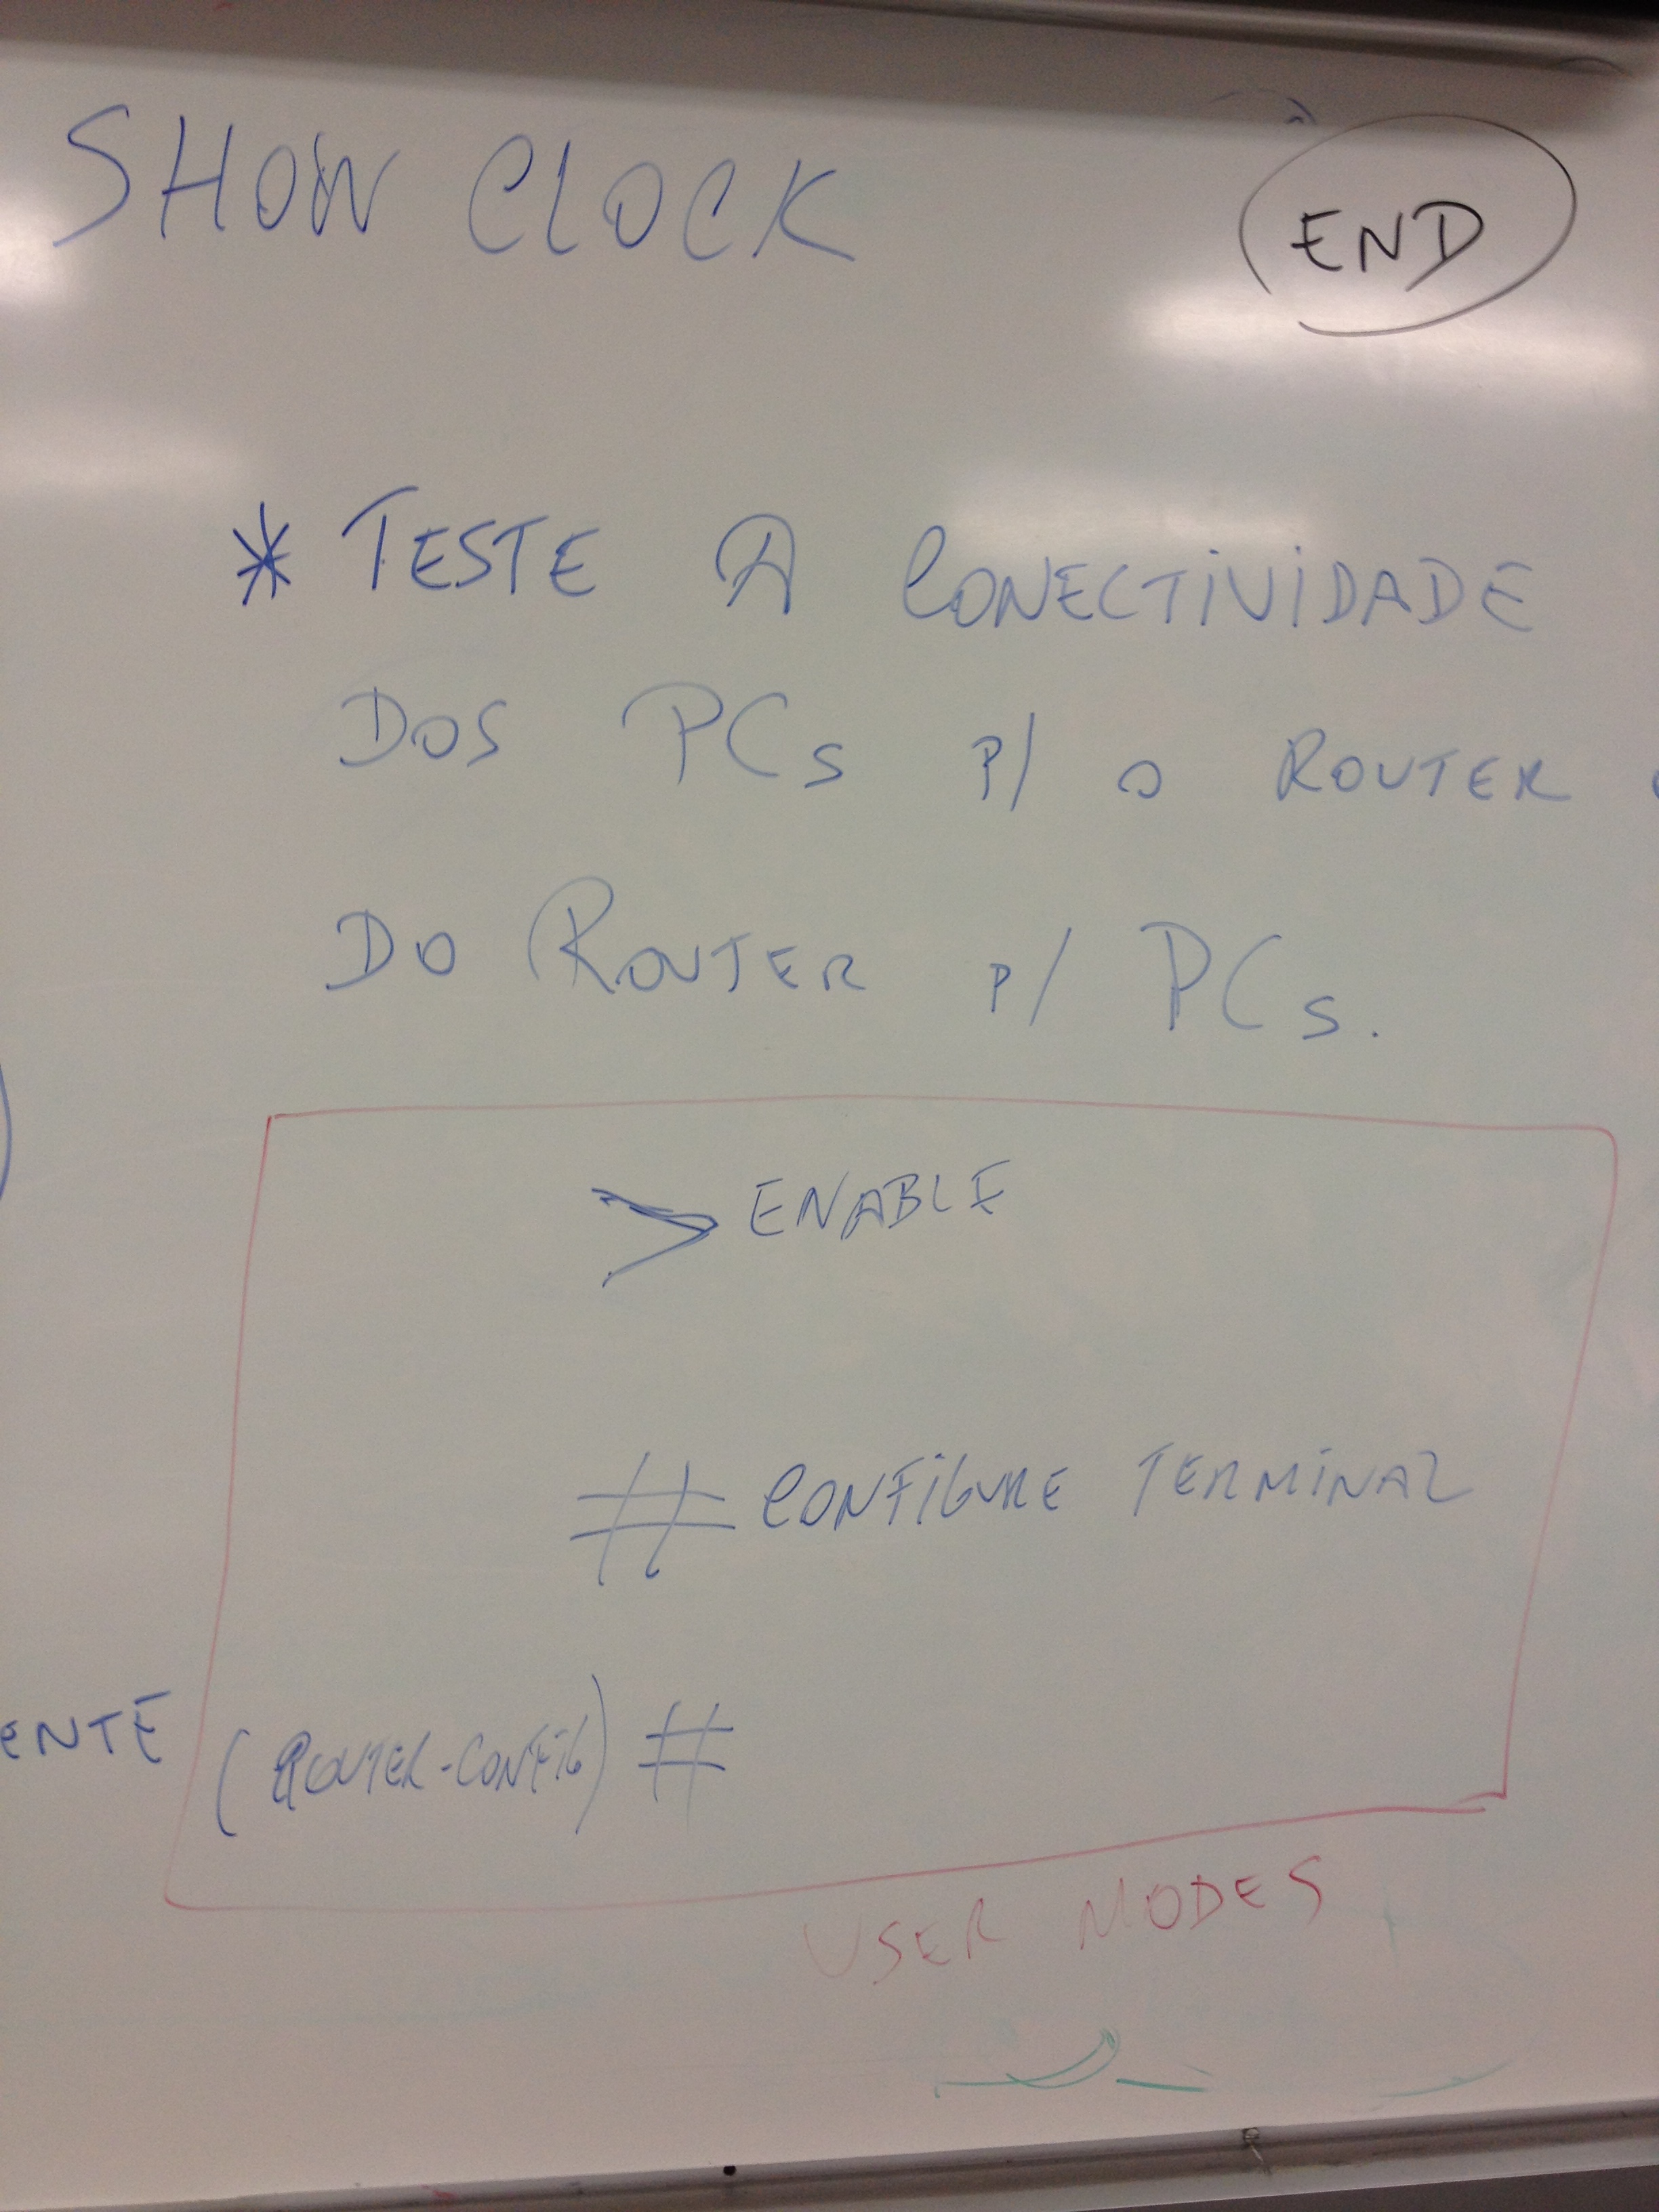 SHOW CLOCK
END
* TESTE A CONECTIVIDADE
DOS PCs P/ O ROUTER
DO ROUTER P/ PCs.
> ENABLE
# CONFIGURE TERMINAL
ENTE
(ROUTER-CONFIG) #
USER MODES